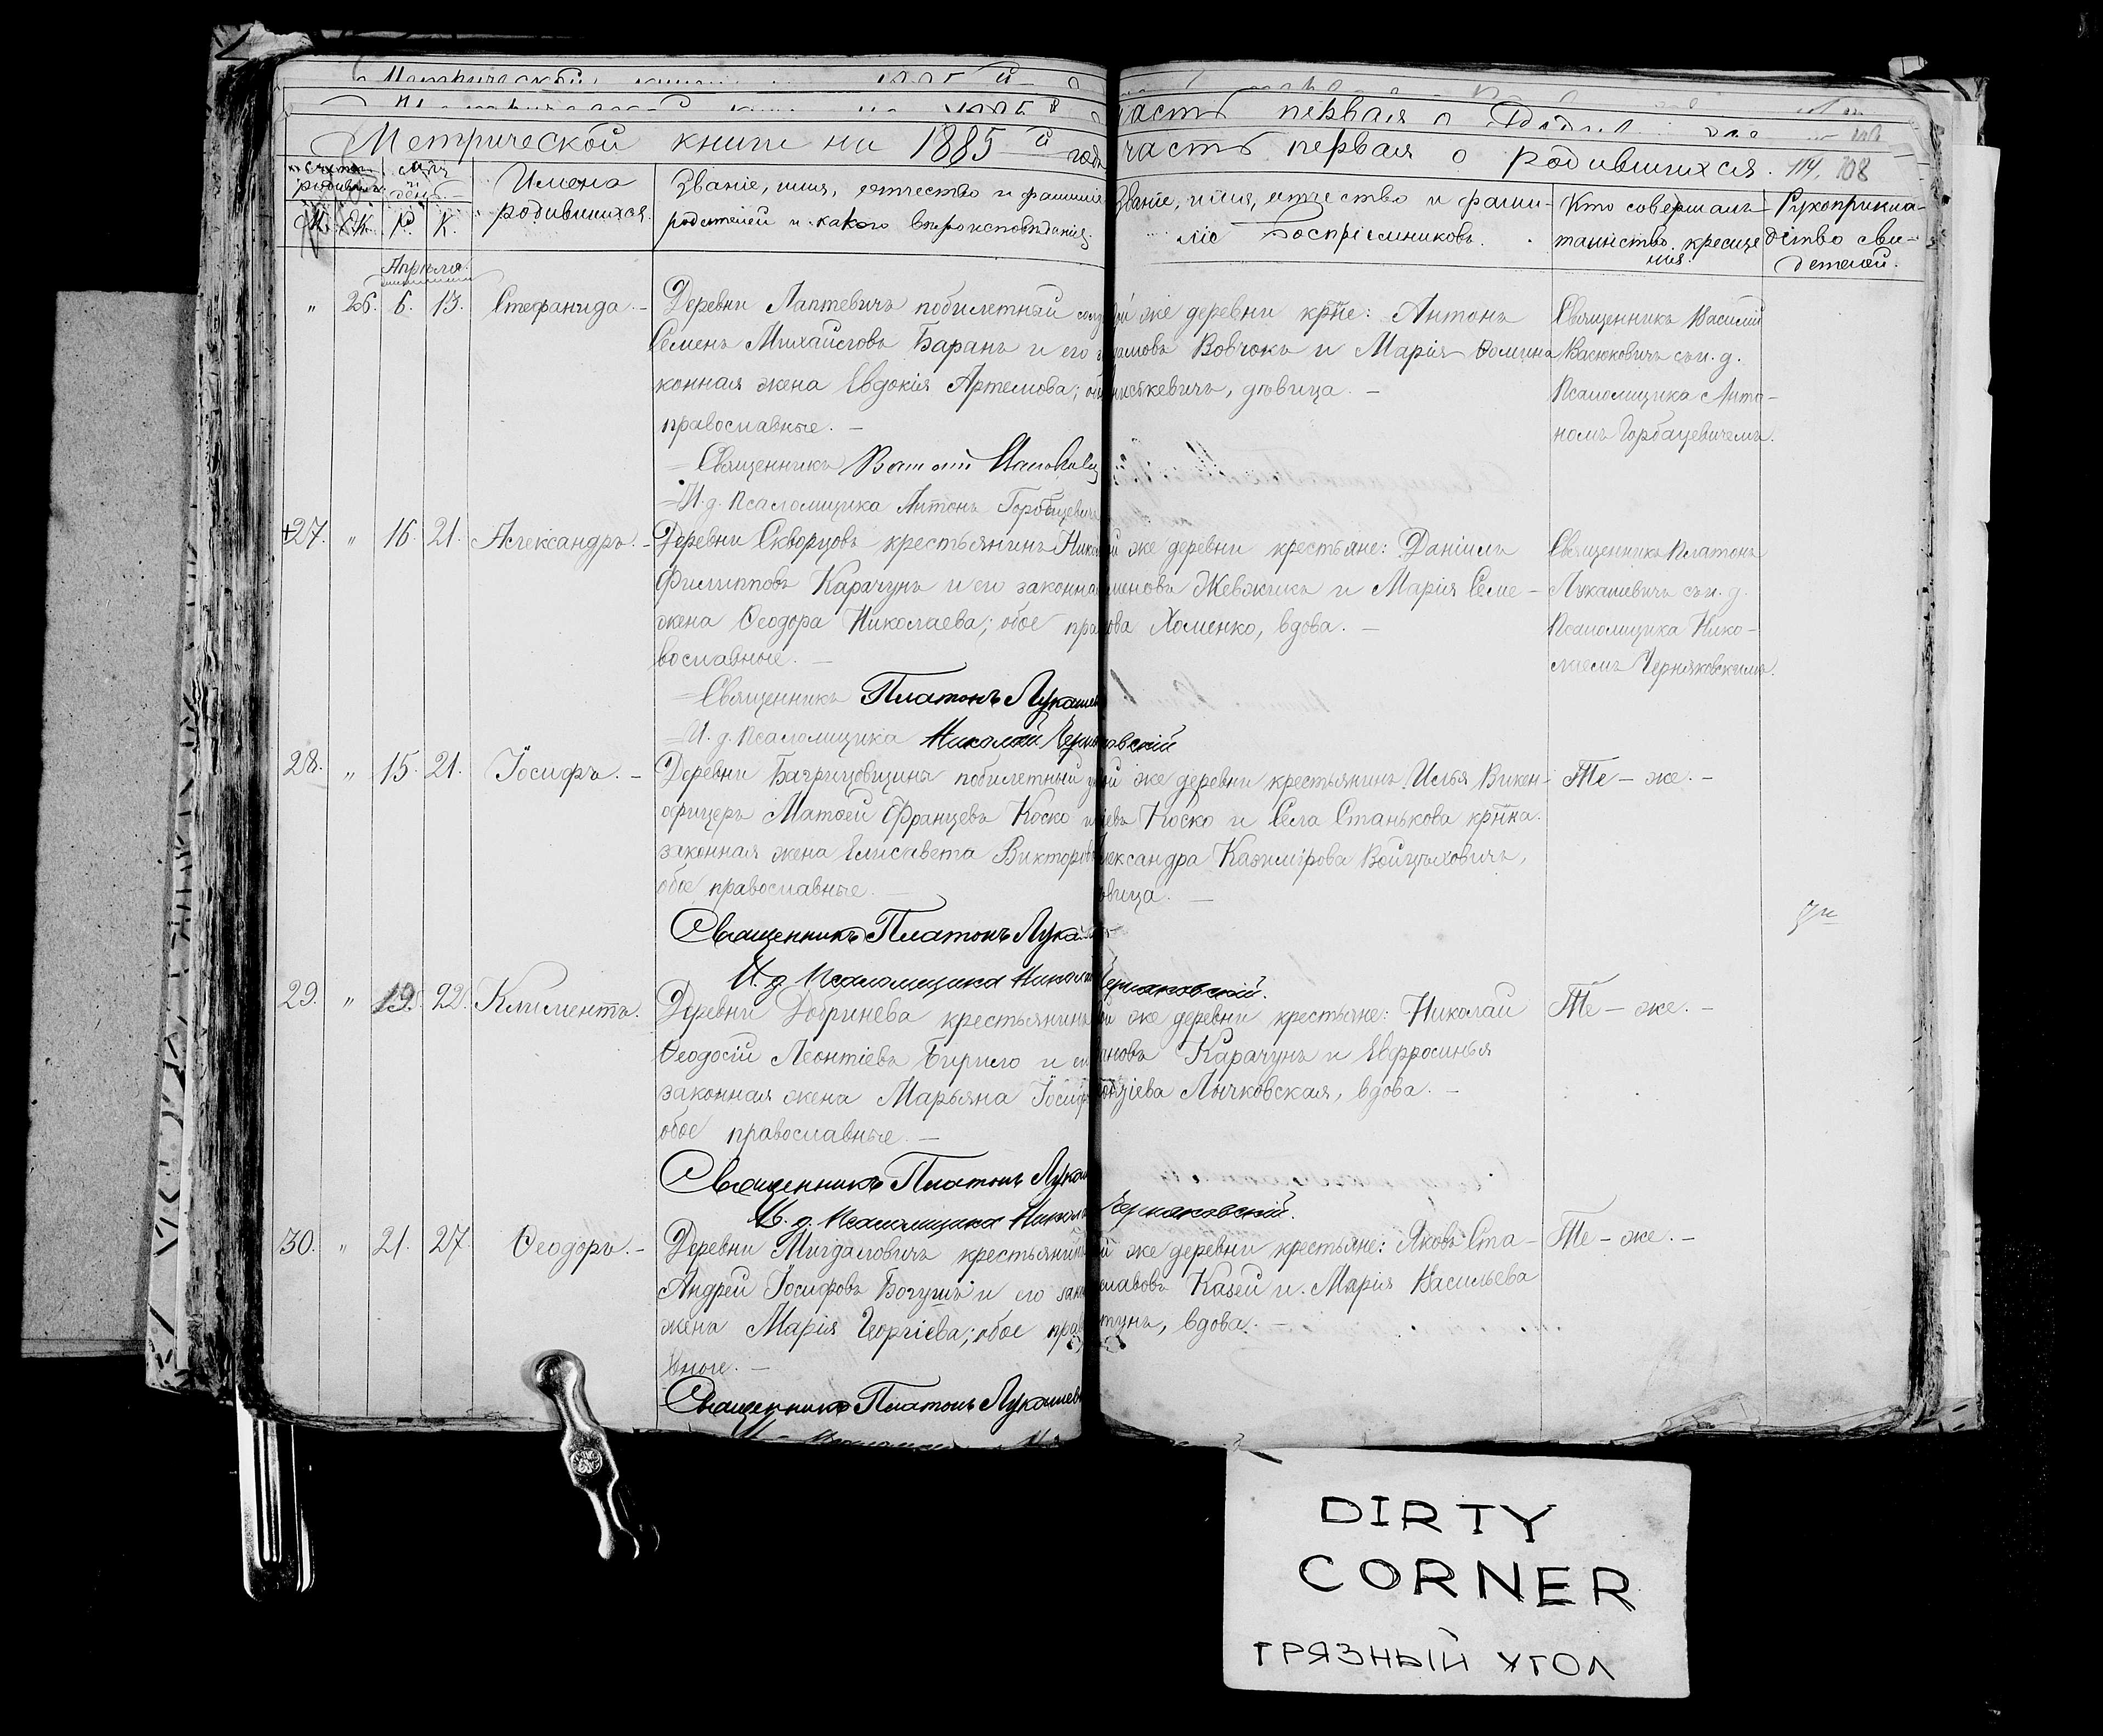 Метрической книги на 1885й годъ
часть первая о родившихся. 114. 108
Имена родившихся.
Званіе, имя, отчество и фамилія
родителей и какого вѣроисповѣданія.
Званіе, имя, отчество и фами-
лія Воспріемниковъ.
Кто совершалъ
таинство крещенія.
Рукоприкла-
дство сви-
детелей.
М. Ж. Р. К.
Апрѣля.
" 26. 6. 13. Стефанида. –
Деревни Лаптевичъ побилетный
Семенъ Михайловъ Баранъ и его
конная жена Евдокія Артемова;
православные. –
Священникъ
И. д. Псаломщика Антонъ Горбацевичъ
же деревни крнѣ: Антонъ
Вовчокъ и Марія Ѳомина
дѣвица. –
Священникъ Василій
съ и. д.
Псаломщика Анто-
номъ Горбацевичемъ.
27. " 16. 21. Александръ. –
Деревни Скворцовъ крестьянинъ
Филипповъ Карачунъ и его законна
жена Ѳеодора Николаева; обое пра
вославные. –
Священникъ Платонъ Лукашев
И. д. Псаломщика Николай Черняковскій
же деревни крестьяне: Даніилъ
Жевжикъ и Марія Семе-
ова Хоменко, вдова. –
Священникъ Платонъ
Лукашевичъ съ и. д.
Псаломщика Нико-
лаемъ Черняковскимъ.
28. " 15. 21. Іосифъ. –
Деревни побилетный
офицеръ Матѳей Францевъ Коско и
законная жена Елисавета Викторов
обое православные. –
Священникъ Платонъ Лука
И. д. Псаломщика Николай Черняковскій.
же деревни крестьянинъ Илья Викен-
Коско и Села Станькова крнка.
лександра Казимірова Войцѣховичъ,
овица. –
Те – же. –
29. " 19. 22. Климентъ.
Деревни Добринева крестьянинъ
Ѳеодосій Леонтіевъ Бирило и
законная жена Марьяна Іосиф
обое православные. –
Священникъ Платонъ Лукаш
И. д. Псаломщика Никол Черняковскій.
же деревни крестьяне: Николай
Карачунъ и Евфросинья
Лычковская, вдова. –
Те – же. –
30. " 21. 27 Ѳеодоръ. –
Деревни Мигдаловичъ крестьянинъ
Андрей Іосифовъ Богушъ и его зак
жена Марія Георгіева; обое прав
ные. –
Священникъ Платонъ Лукашев
же деревни крестьяне: Яковъ Ста-
славовъ Казей и Марія Васильева
вдова. –
Те – же. –
DIRTY
CORNER
ГРЯЗНЫЙ УГОЛ